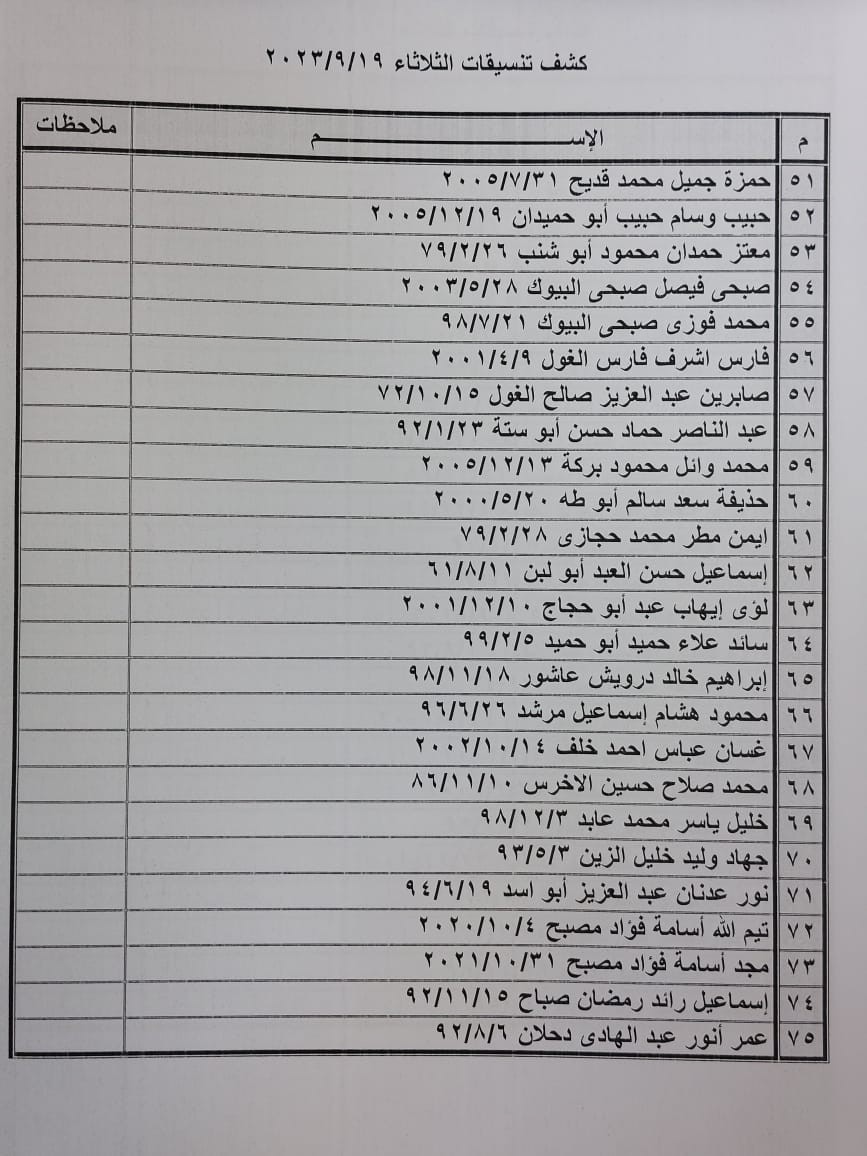 كشف تنسيقات الثلاثاء ٢٠٢٣/٩/١٩
م الإســـم ملاحظات
٥١ حمزة جميل محمد قديح ٢٠٠٥/٧/٣١
٥٢ حبيب وسام حبيب أبو حميدان ٢٠٠٥/١٢/١٩
٥٣ معتز حمدان محمود أبو شنب ٧٩/٢/٢٦
٥٤ صبحى فيصل صبحى البيوك ٢٠٠٣/٥/٢٨
٥٥ محمد فوزى صبحى البيوك ٩٨/٧/٢١
٥٦ فارس اشرف فارس الغول ٢٠٠١/٤/٩
٥٧ صابرين عبد العزيز صالح الغول ٧٢/١٠/١٥
٥٨ عبد الناصر حماد حسن أبو ستة ٩٢/١/٢٣
٥٩ محمد وائل محمود بركة ٢٠٠٥/١٢/١٣
٦٠ حذيفة سعد سالم أبو طه ٢٠٠٠/٥/٢٠
٦١ ايمن مطر محمد حجازى ٧٩/٢/٢٨
٦٢ إسماعيل حسن العبد أبو لبن ٦١/٨/١١
٦٣ لؤى إيهاب عبد أبو حجاج ٢٠٠١/١٢/١٠
٦٤ سائد علاء حميد أبو حميد ٩٩/٢/٥
٦٥ إبراهيم خالد درويش عاشور ٩٨/١١/١٨
٦٦ محمود هشام إسماعيل مرشد ٩٦/٦/٢٦
٦٧ غسان عباس احمد خلف ٢٠٠٢/١٠/١٤
٦٨ محمد صلاح حسين الاخرس ٨٦/١١/١٠
٦٩ خليل ياسر محمد عابد ٩٨/١٢/٣
٧٠ جهاد وليد خليل الزين ٩٣/٥/٣
٧١ نور عدنان عبد العزيز أبو اسد ٩٤/٦/١٩
٧٢ تيم الله أسامة فؤاد مصبح ٢٠٢٠/١٠/٤
٧٣ مجد أسامة فؤاد مصبح ٢٠٢١/١٠/٣١
٧٤ إسماعيل رائد رمضان صباح ٩٢/١١/١٥
٧٥ عمر أنور عبد الهادى دحلان ٩٢/٨/٦